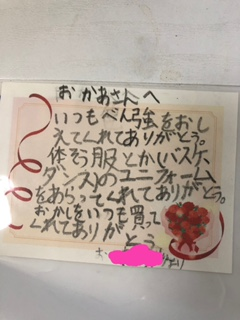 おかあさんへ
いつもべん強をおし
えてくれてありがとう。
体そう服とか(バスケ、
ダンス)のユニフォーム
をあらってくれてありがとう。
おかしをいつも買って
くれてありがとう。